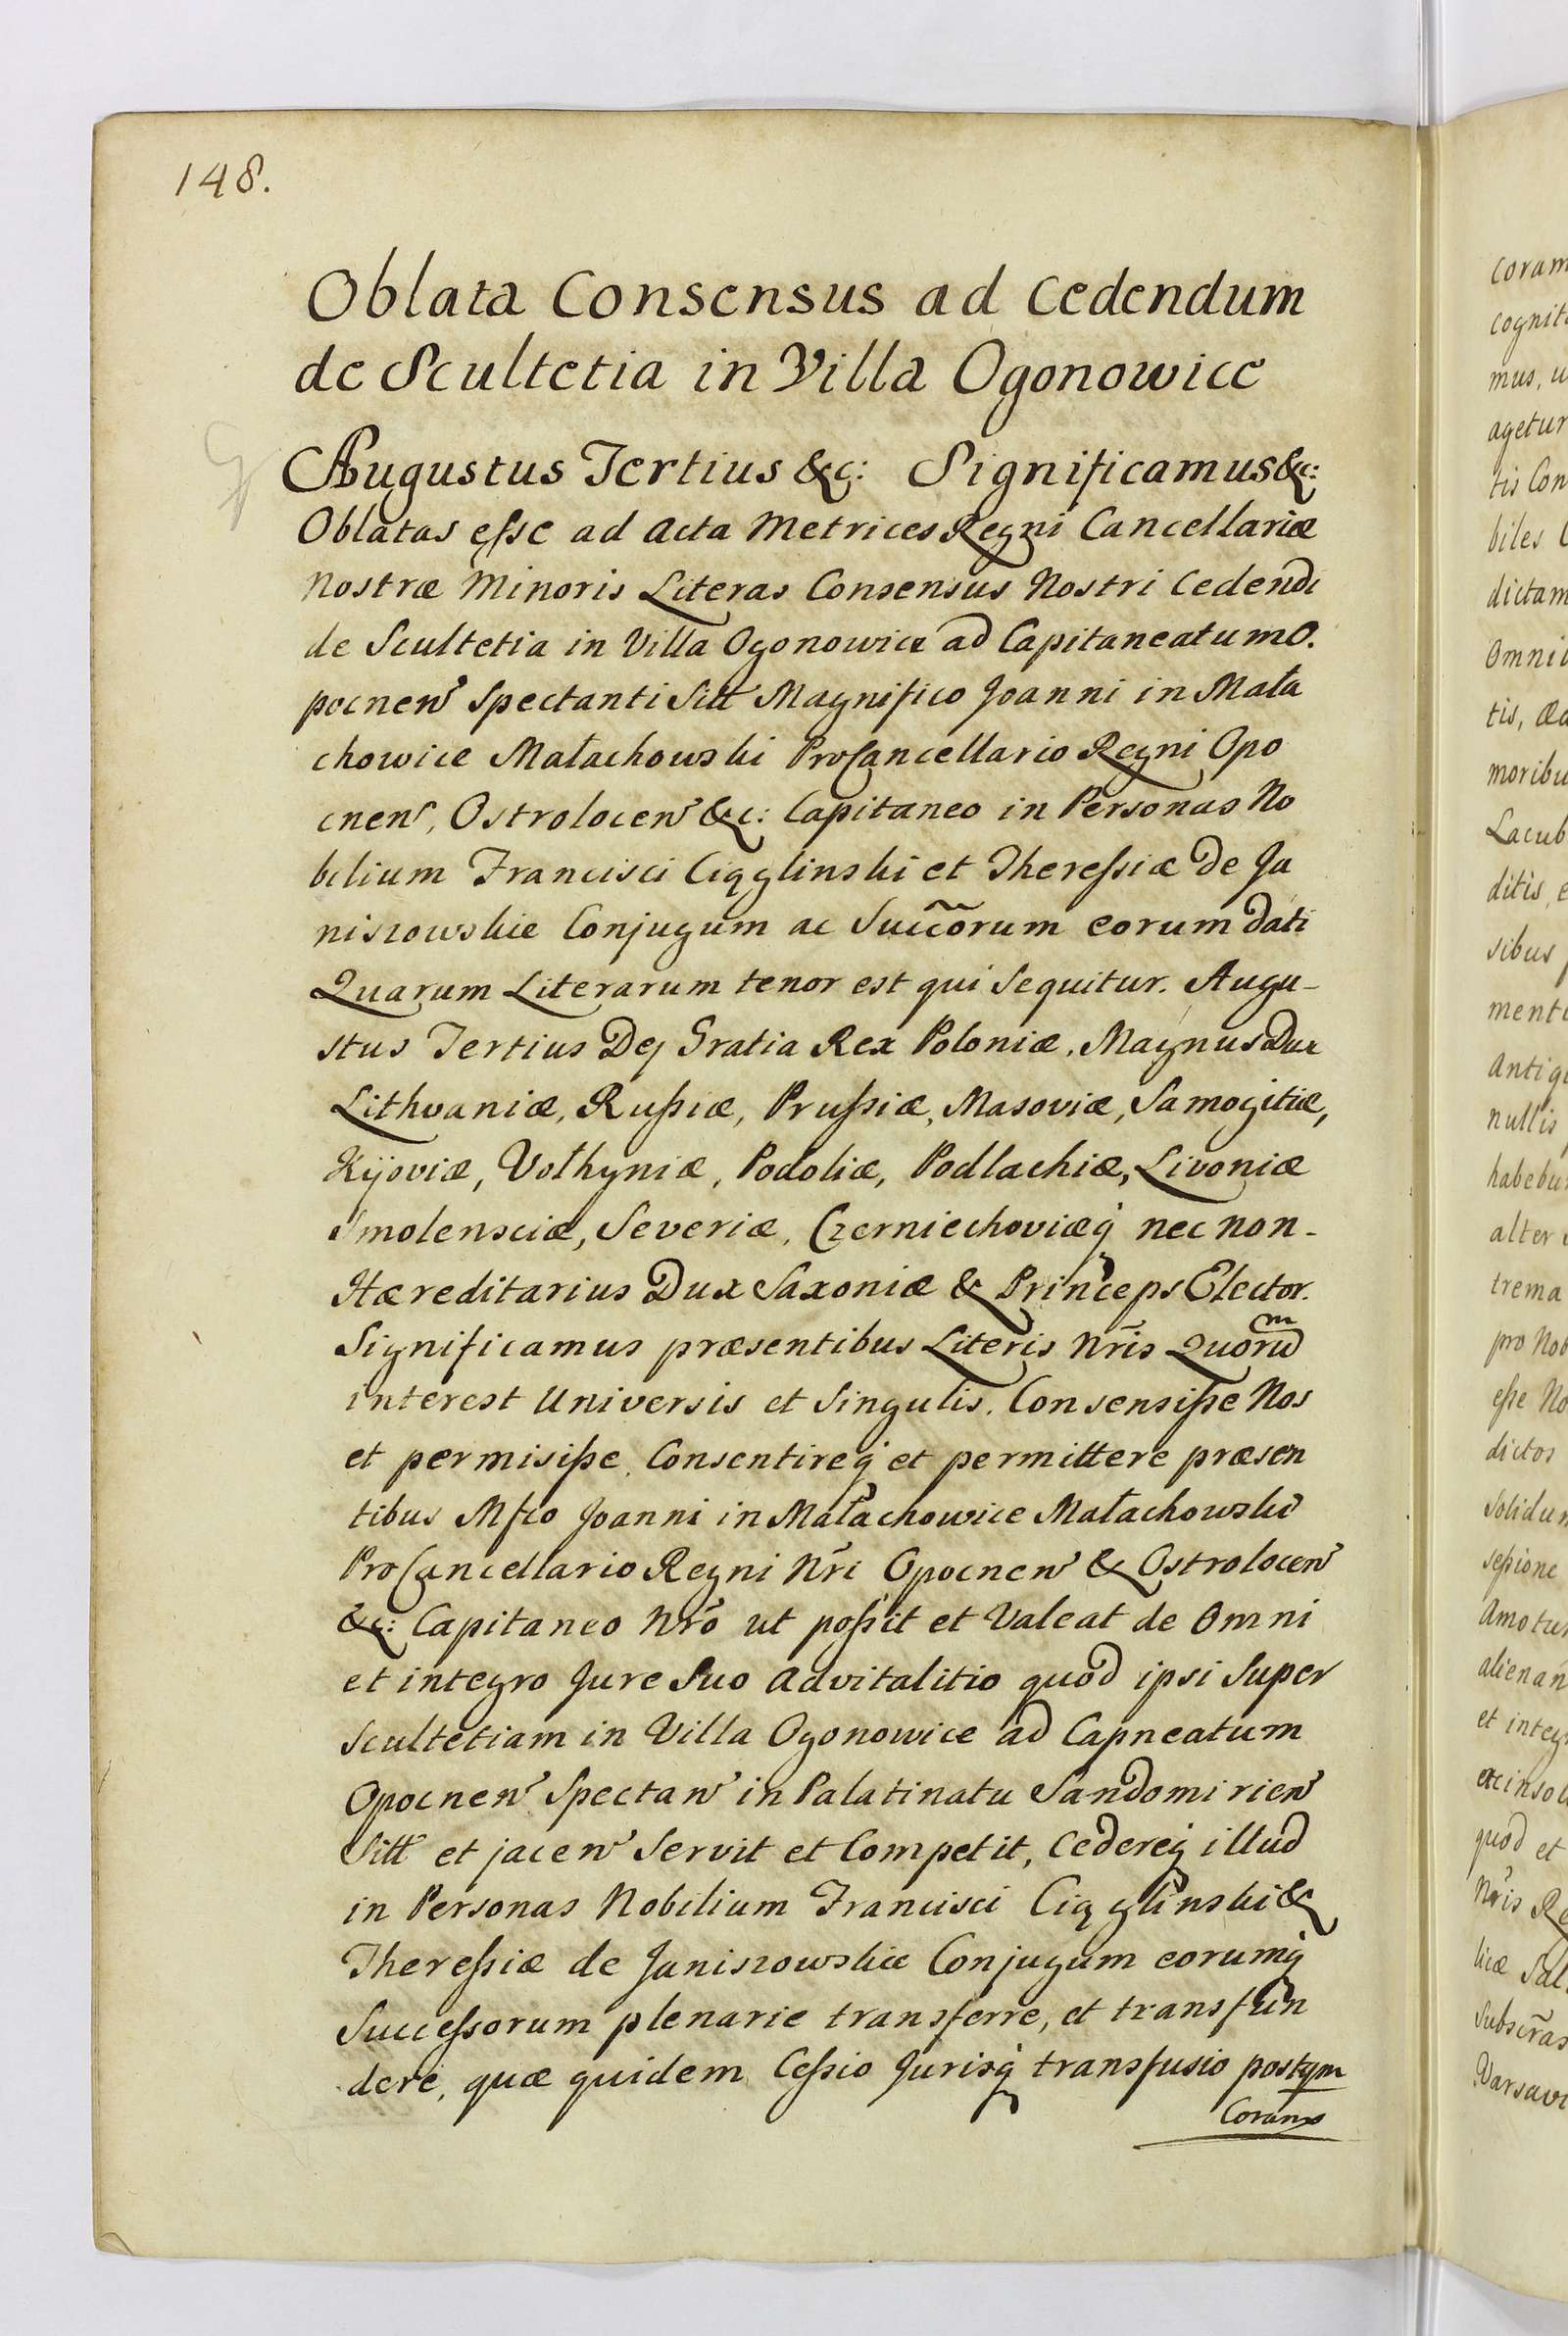 148.
Oblata Consensus ad Cedendum
de Scultetia in Villa Ogonowice
Augustus Tertius &c: Significamus &c:
Oblatas esse ad Acta Metrices Regni Cancellariæ
Nostræ Minoris Literas Consensus Nostri Cedendi
de Scultetia in Villa Ogonowice ad Capitaneatum O.
pocnen̄ Spectanti Sitt Magnifico Joanni in Mała
chowice Małachowski ProCancellario Regni Opo
cnen̄, Ostrolocen̄ &c: Capitaneo in Personas No
bilium Francisci Ciąglinski et Theressiæ de Ja
niszowskie Conjugum ac Succõrum eorum dati
Quarum Literarum tenor est qui Sequitur. Augu-
stus Tertius Dej Gratia Rex Poloniæ, Magnus Dux
Lithvaniæ, Russiæ, Prussiæ, Masoviæ, Samogitiæ,
Kijoviæ, Vołhyniæ, Podoliæ, Podlachiæ, Livoniæ
Smolensciæ, Severiæ, Czerniechoviæq̀ nec non-
Hæreditarius Dux Saxoniæ & Princeps Elector.
Significamus præsentibus Literis Nr̃is Quorũ
interest Universis et Singulis. Consensisse Nos
et permisisse, Consentireq̀ et permittere præsen
tibus Mfco Joanni in Małachowice Małachowski
ProCancellario Regni Nr̃i Opocnen̄ & Ostrolocen̄
&c: Capitaneo Nr̃o ut possit et Valeat de Omni
et integro Jure Suo Advitalitio quod ipsi Super
Scultetiam in Villa Ogonowice ad Capneatum
Opocnen̄ Spectan̄ in Palatinatu Sandomirien̄
Sitt et jacen̄ Servit et Competit, Cedereq̀ illud
in Personas Nobilium Francisci Ciąglinski &
Theressiæ de Janiszowskie Conjugum eorumq̀
Successorum plenarie transferre, et transfun
dere, quæ quidem Cessio Jurisq̀ transfusio postqm
Coram
coram
cognit
mus, u
agetur
tis Con
biles
dictam
Omni
tis, æd
moribu
Lacub
ditis, e
sibus
menti
Antiqu
nullis
habebu
alter
trema
pro Nob
esse No
dictos
Solidum
sessione
Amotu
alienan
et integr
quod et
Nr̃is Re
licæ Sal
Subscr̃as
Varsavi